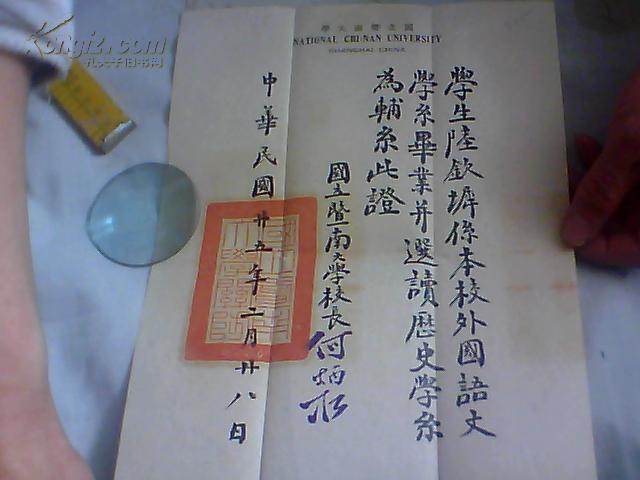 國立暨南大學
NATIONAL CHI-NAN UNIVERSITY
SHANGHAI, CHINA
學生陸欽墀係本校外國語文
學系畢業并選讀歷史學系
為輔系此證
國立暨南大學校長何炳松
中華民國廿五年二月廿八日
kongfz.com
孔夫子旧书网